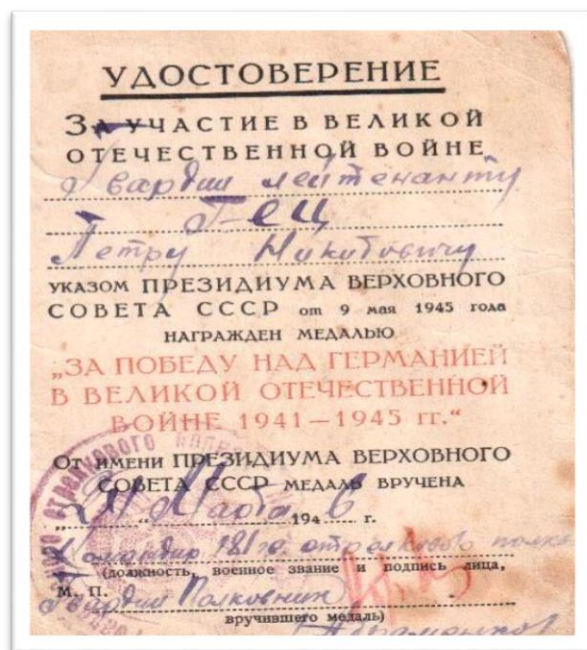 УДОСТОВЕРЕНИЕ
ЗА УЧАСТИЕ В ВЕЛИКОЙ
ОТЕЧЕСТВЕННОЙ ВОЙНЕ
Гвардии лейтенанту
Г-ец
Петру Никитовичу
УКАЗОМ ПРЕЗИДИУМА ВЕРХОВНОГО
СОВЕТА СССР от 9 мая 1945 года
НАГРАЖДЕН МЕДАЛЬЮ
„ЗА ПОБЕДУ НАД ГЕРМАНИЕЙ
В ВЕЛИКОЙ ОТЕЧЕСТВЕННОЙ
ВОЙНЕ 1941—1945 гг.“
ОТ ИМЕНИ ПРЕЗИДИУМА ВЕРХОВНОГО
СОВЕТА СССР МЕДАЛЬ ВРУЧЕНА
Марта 1946 г.
Командир 181 го стрелкового полка
(должность, военное звание и подпись лица,
М. П.
Гвардии Полковник
вручившего медаль)